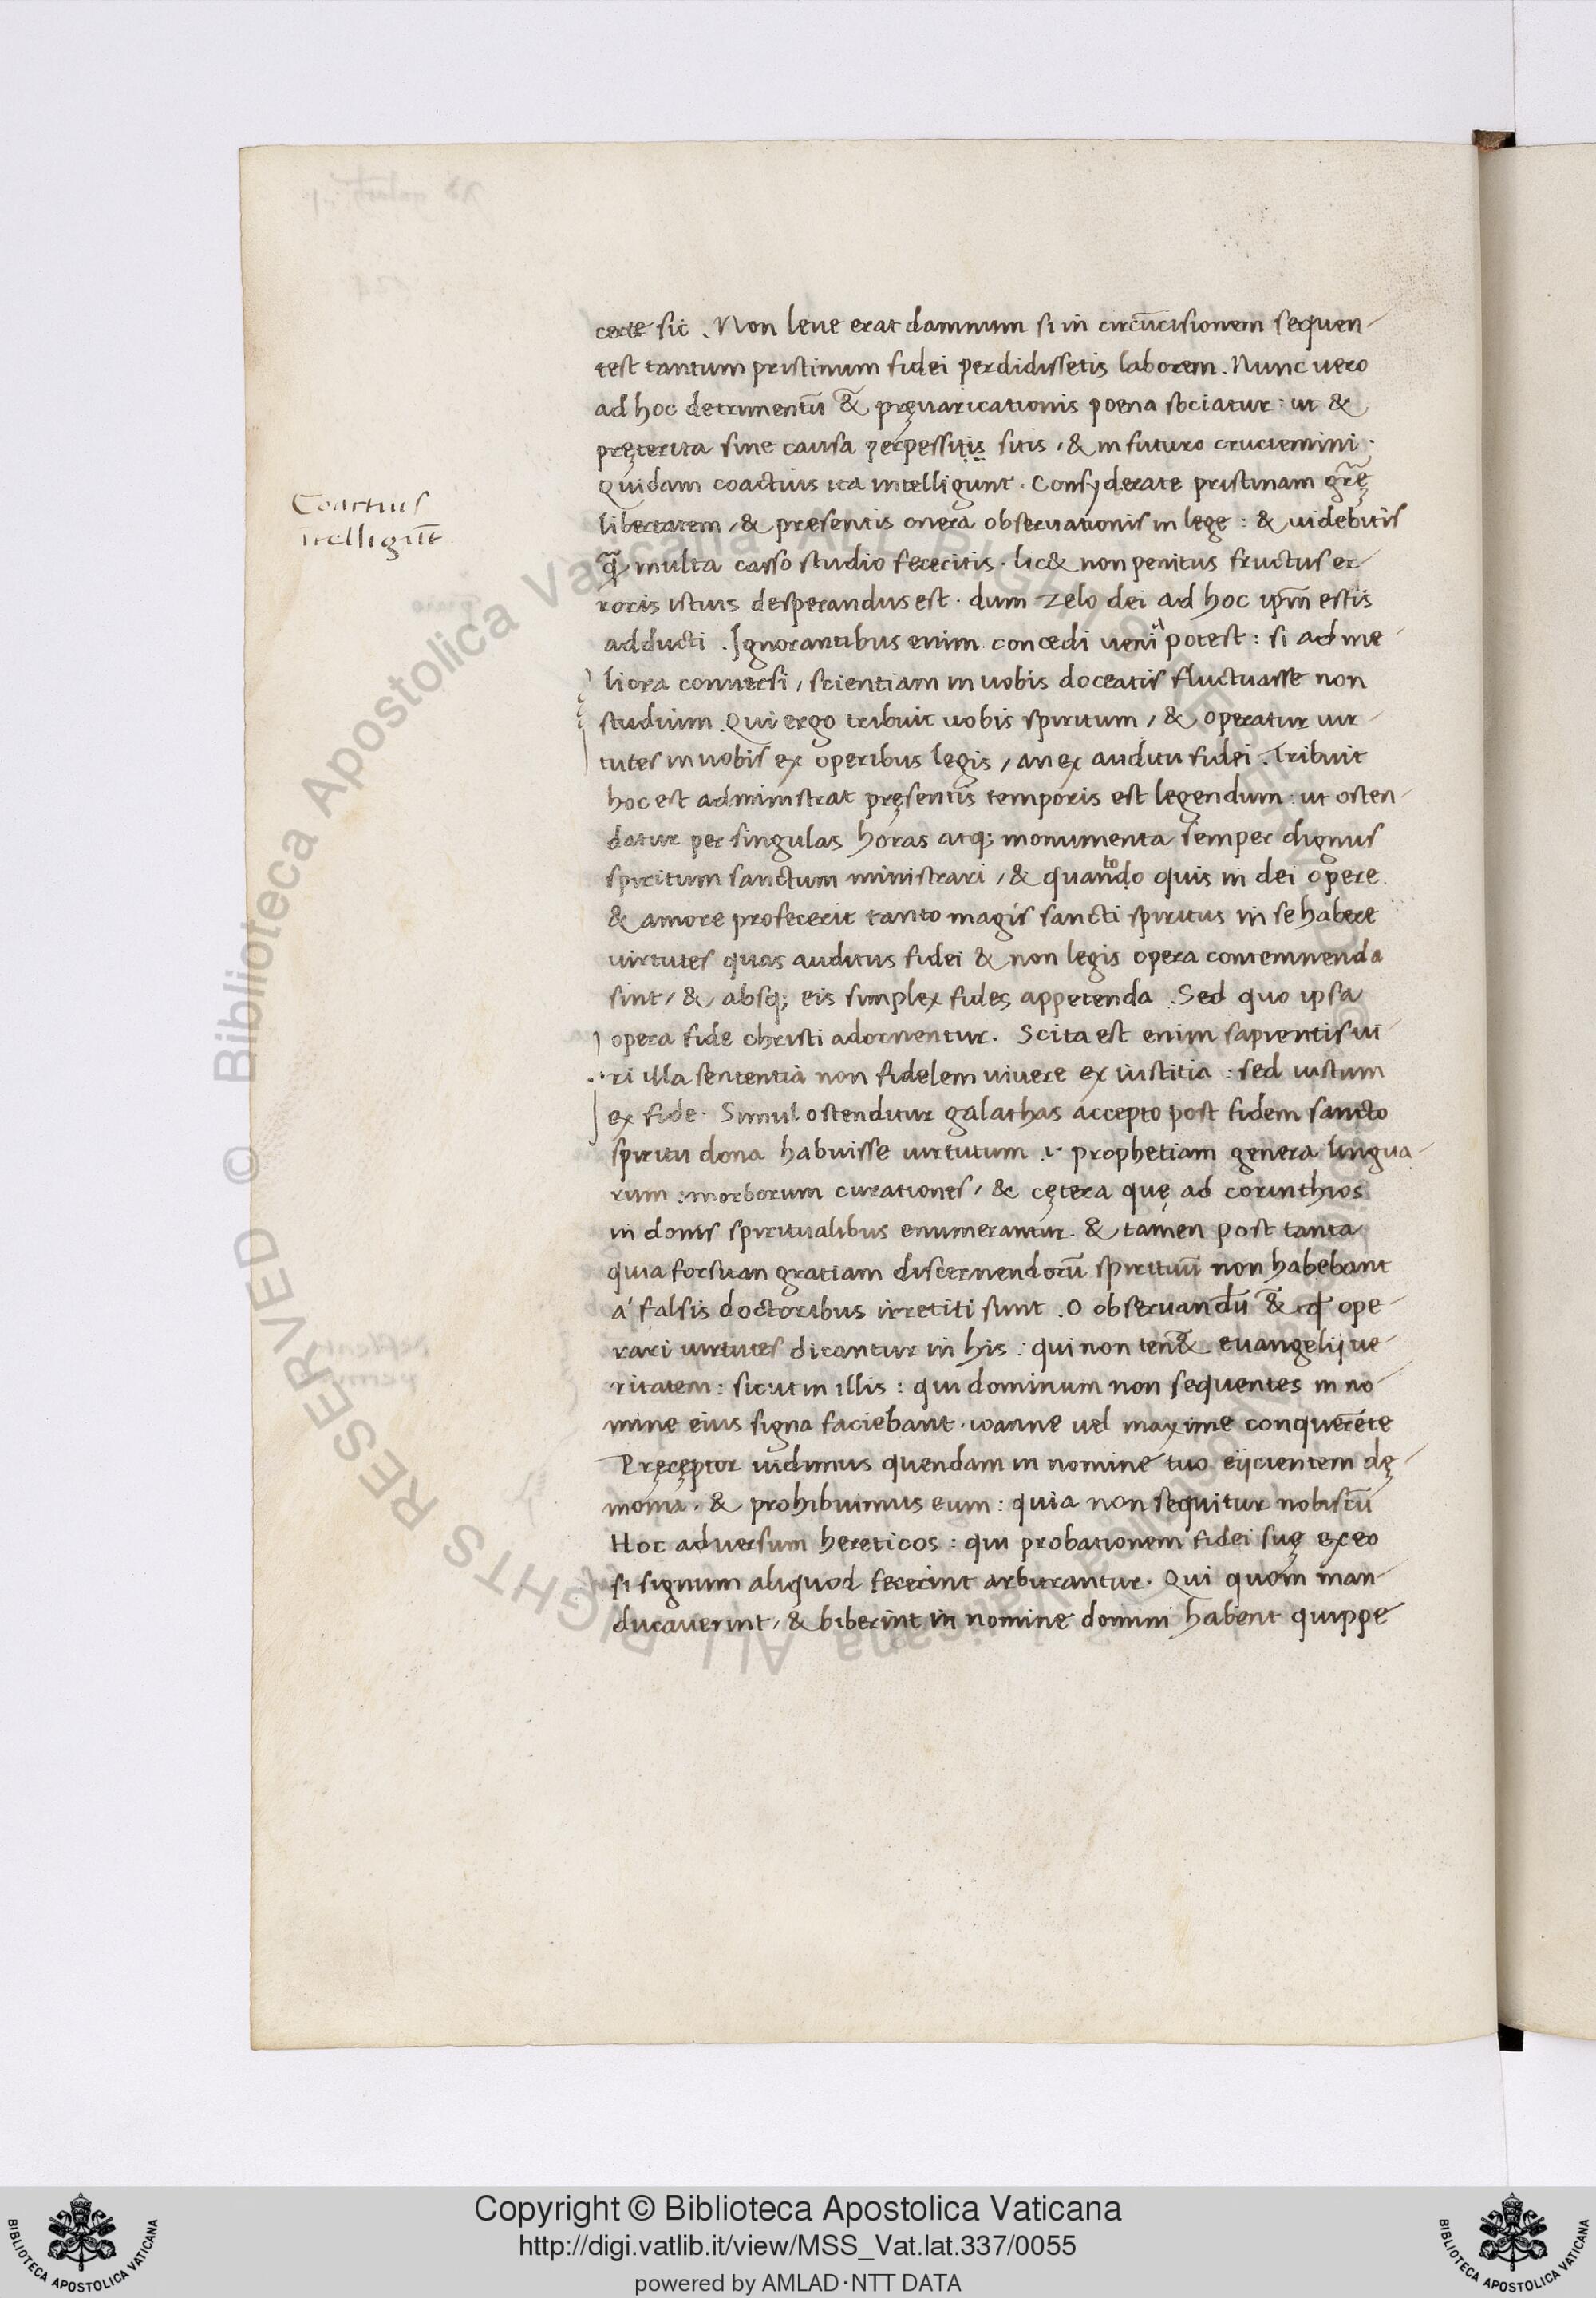 certe sic . Non leue erat damnum si in circūcisionem sequen-
test tantum pristinum fidei perdidissetis laborem. Nunc uero
ad hoc detrimentū & pręuaricationis poena sociatur: ut &
pręterita sine causa perpessitis sitis, & in futuro cruciemini.
Quidam coactius ita intelligunt. Consyderate pristinam gr̃ę
Coactius
libertatem, & presentis onera obseruationis in lege : & uidebitis
ītelligūt
q̃ multa casso studio feceritis. lic& non penitus fructus er-
roris istius desperandus est. dum zelo dei ad hoc ipm̄ estis
adducti . Ignorantibus enim concedi ueniˆa potest : si ad me-
liora conuersi, scientiam in uobis doceatis fluctuasse non
studium. Qui ergo tribuit uobis spiritum, & operatur uir-
tutes in uobis ex operibus legis, an ex auditu fidei. Tribuit
hoc est administrat pręsentis temporis est legendum: ut osten-
datur per singulas horas atq; monumenta semper dignus
spiritum sanctum ministrari, & quando to quis in dei opere
& amore profecerit tanto magis sancti spiritus in se habere
uirtutes quas auditus fidei & non legis opera contemnenda
sint, & absq; eis simplex fides appetenda . Sed quo ipsa
opera fide christi adornentur. Scita est enim sapientis ui-
ri illa sententia non fidelem uiuere ex iustitia : sed iustum
ex fide. Simul ostenditur galathas accepto post fidem sancto
spiritu dona habuisse uirtutum .i. prophetiam genera lingua-
rum : morborum curationes, & cętera quę ad corinthios
in donis spiritualibus enumerantur. & tamen post tanta
quia forsitan gratiam discernendorū spirituū non habebant
a falsis doctoribus irretiti sunt . O obseruandū & q ope-
rari uirtutes dicantur in his : qui non ten& euangelij ue-
ritatem : sicut in illis : qui dominum non sequentes in no-
mine eius signa faciebant. ioanne uel maxime conquerēte
Pręceptor uidimus quendam in nomine tuo eijcientem dę-
monia. & prohibuimus eum : quia non sequitur nobiscū
Hoc aduersum hereticos : qui probationem fidei suę ex eo
si signum aliquod fecerint arbitrantur. Qui quom man-
ducauerint, & biberint in nomine domini habent quippe
© Biblioteca Apostolica Vaticana ALL RIGHTS RESERVED
Copyright © Biblioteca Apostolica Vaticana
http://digi.vatlib.it/view/MSS_Vat.lat.337/0055
powered by AMLAD·NTT DATA
BIBLIOTECA APOSTOLICA VATICANA
BIBLIOTECA APOSTOLICA VATICANA